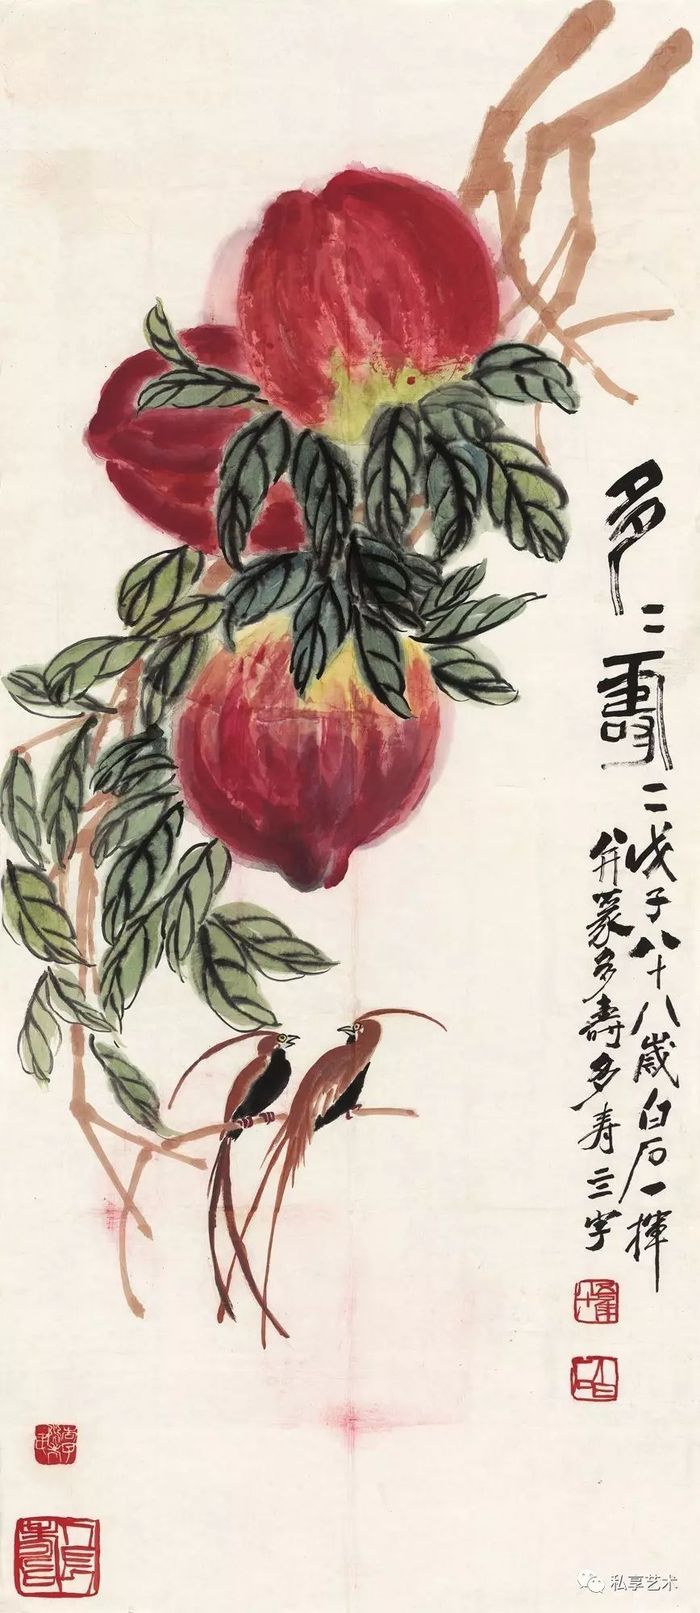 多二壽二
戊子八十八歲白石一揮
并篆多壽多寿三字
人長壽
私享艺术